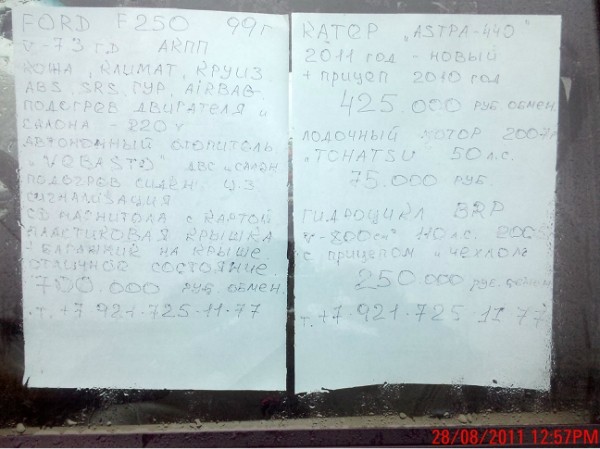 FORD F250 99г
V-7.3 ТД АКПП
КОЖА, КЛИМАТ, КРУИЗ
ABS, SRS, ГУР, AIRBAG
ПОДОГРЕВ ДВИГАТЕЛЯ и
САЛОНА - 220 V
АВТОНОМНЫЙ ОТОПИТЕЛЬ
"WEBASTO" ДВС и САЛОН
ПОДОГРЕВ СИДЕН. Ц.З.
СИГНАЛИЗАЦИЯ
CD МАГНИТОЛА С КАРТОЙ
ПЛАСТИКОВАЯ КРЫШКА
БАГАЖНИК НА КРЫШЕ
ОТЛИЧНОЕ СОСТОЯНИЕ
700.000 РУБ. ОБМЕН.
т. +7 921.725.11.77
КАТЕР "ASTРА-440"
2011 год - НОВЫЙ
+ ПРИЦЕП 2010 год
425.000 РУБ. ОБМЕН.
ЛОДОЧНЫЙ МОТОР 2007г.
"TOHATSU 50 л.с.
75.000 РУБ.
ГИДРОЦИКЛ BRP
V-800см³ 110 л.с. 2005
с ПРИЦЕПОМ и ЧЕХЛОМ
250.000 РУБ. ОБМЕН
т. +7.921.725.11.77
28/08/2011 12:57PM